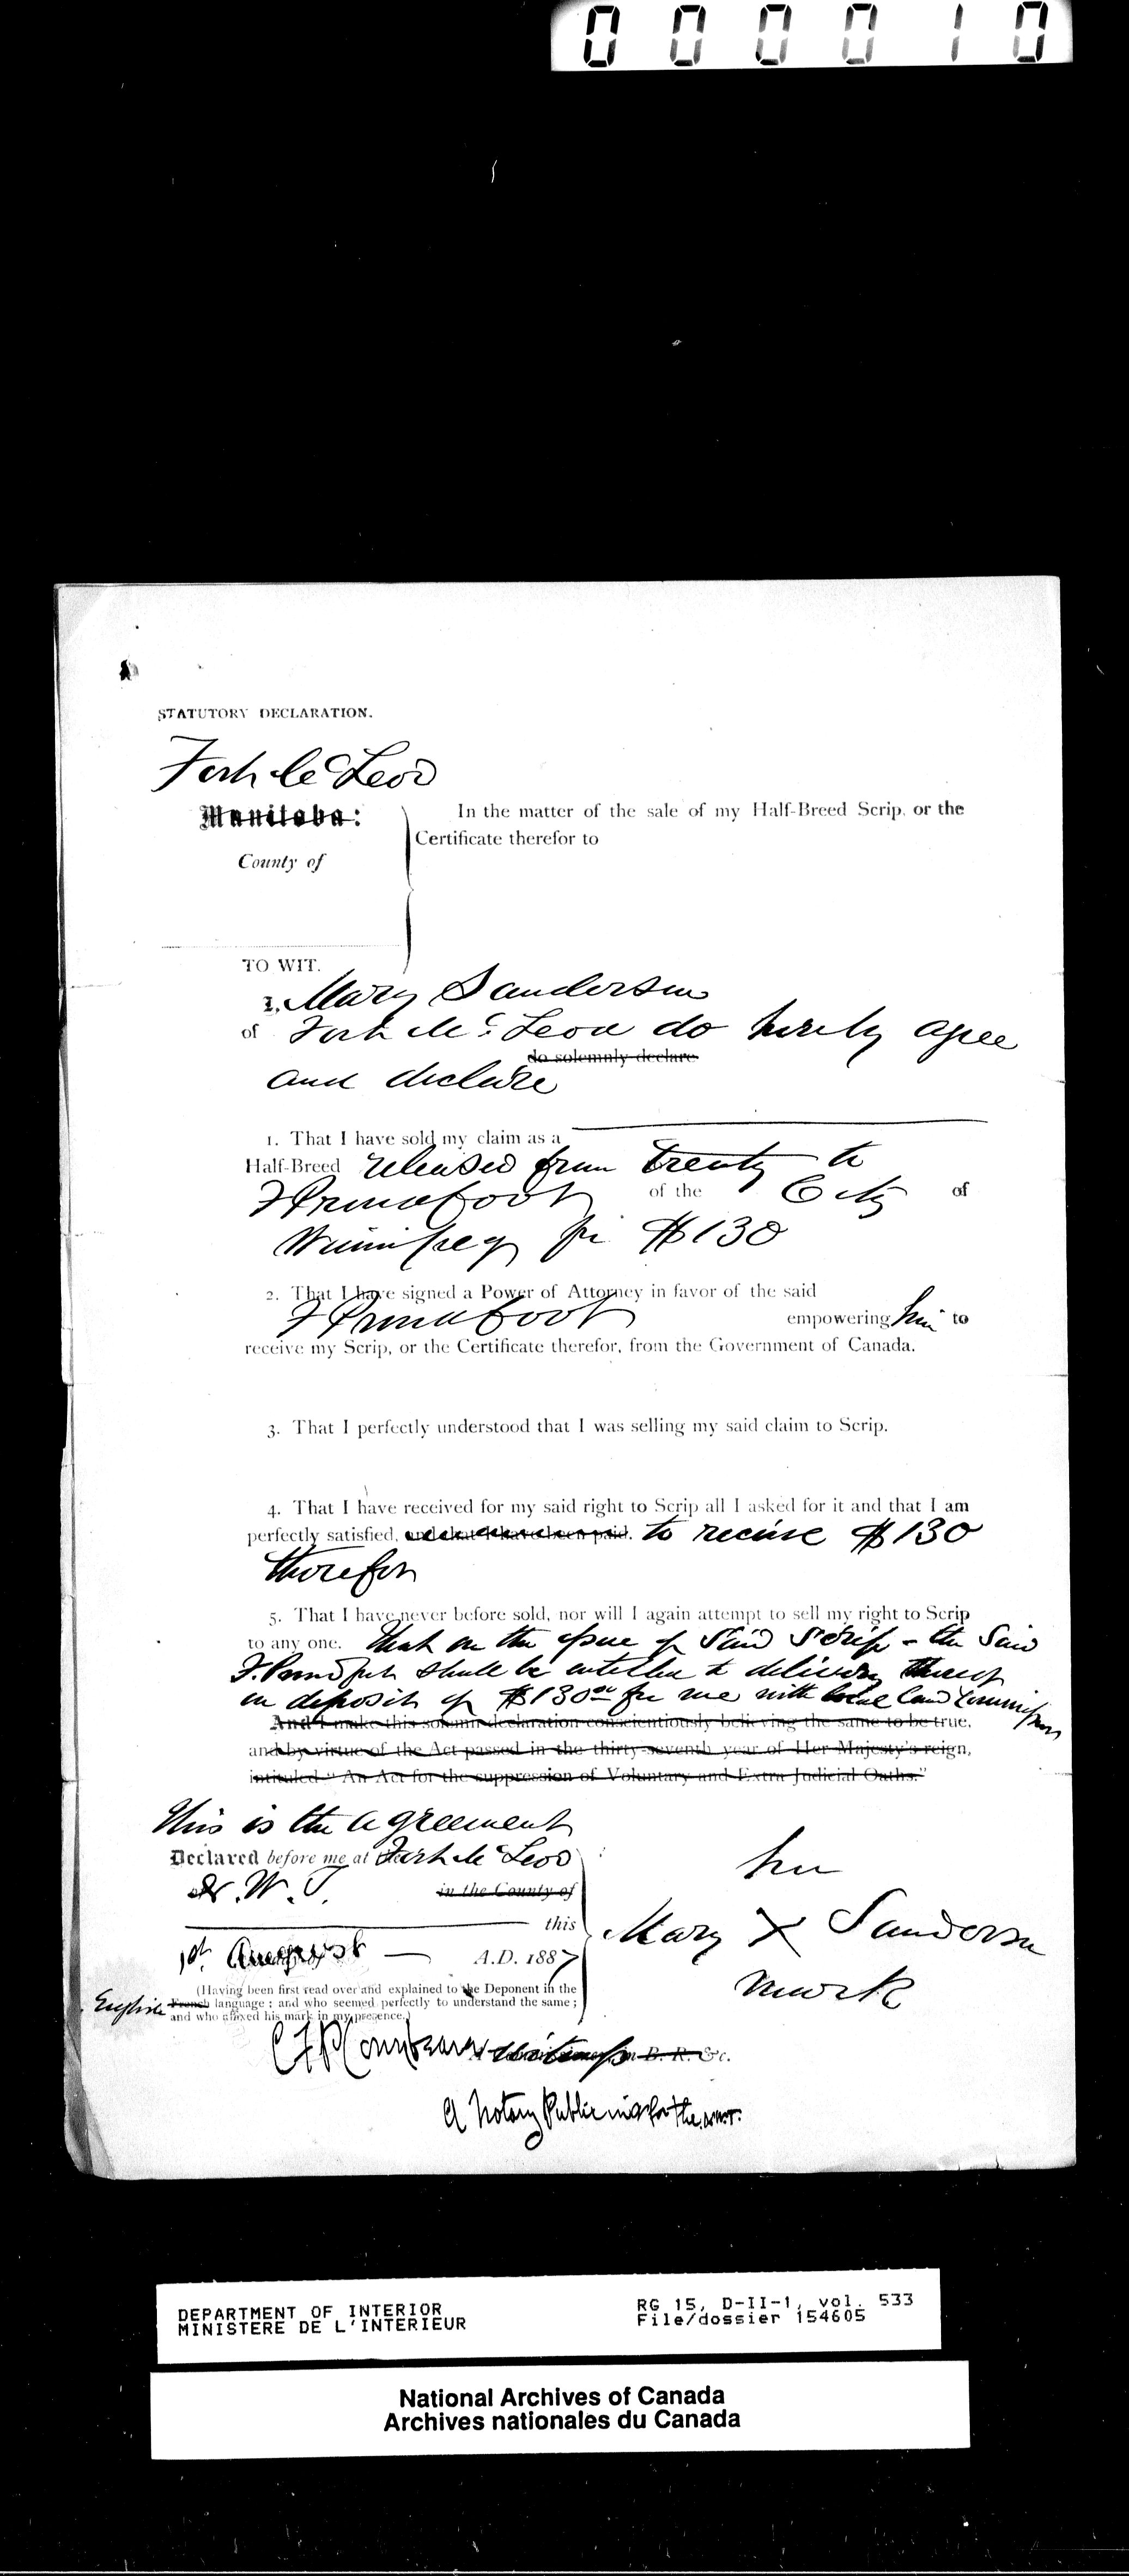 000010
STATUTORY DECLARATION.
Fort Mc Leod
Manitoba:
County of
In the matter of the sale of my Half-Breed Scrip, or the
Certificate therefor to
TO WIT.
I, Mary Sanderson
of Fort Mc Leod do hereby agree
do solemnly declare
and declare
1. That I have sold my claim as a
Half-Breed released from Treaty to
of the City of
Winnipeg for $130
2. That I have signed a Power of Attorney in favor of the said
empowering him to
receive my Scrip, or the Certificate therefor, from the Government of Canada.
3. That I perfectly understood that I was selling my said claim to Scrip.
4. That I have received for my said right to Scrip all I asked for it and that I am
perfectly satisfied, and that I have been paid. to receive $130
therefor
5. That I have never before sold, nor will I again attempt to sell my right to Scrip
to any one. That on the issue of said scrip - the said
F. shall be entitled to delivery thereof
on deposit of $130.00 for me with local land
And I make this solemn declaration conscientiously believing the same to be true,
and by virtue of the Act passed in the thirty-seventh year of Her Majesty's reign,
intituled "An Act for the suppression of Voluntary and Extra Judicial Oaths."
This is the agreement
Declared before me at Fort Mc Leod
N. W. T. in the County of
this
1st August A.D. 1887
(Having been first read over and explained to the Deponent in the
English French language; and who seemed perfectly to understand the same;
and who affixed his mark in my presence.)
her
Mary X Sanderson
mark
in B. R. &c.
A Notary Public in & for the N.W.T.
DEPARTMENT OF INTERIOR
MINISTERE DE L'INTERIEUR
RG 15, D-II-1, vol. 533
File/dossier 154605
National Archives of Canada
Archives nationales du Canada